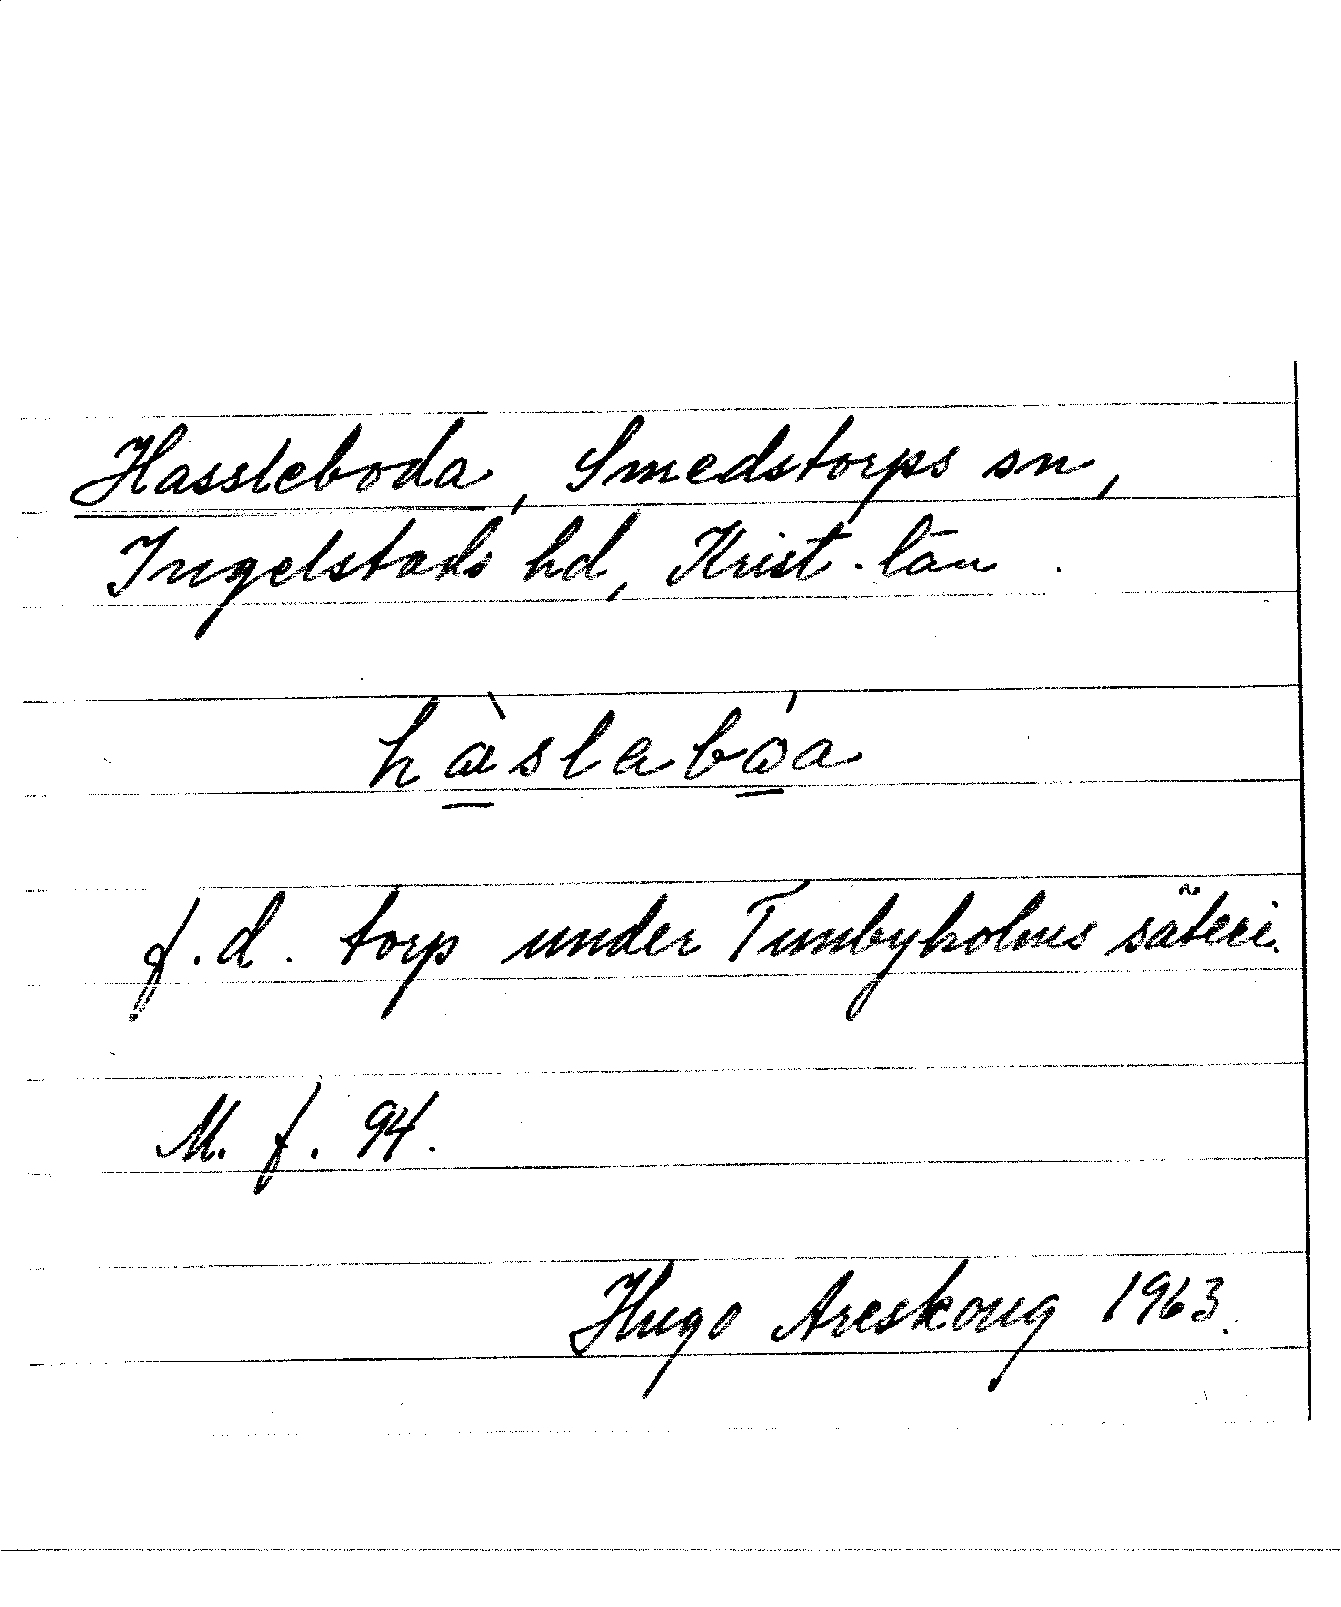 Hassleboda, Smedstorps sn,
Ingelstads hd, Krist. län.
hàslabǻa
f.d. torp under Tunbyholms säteri.
M. f. 94.
Hugo Areskoug 1963.